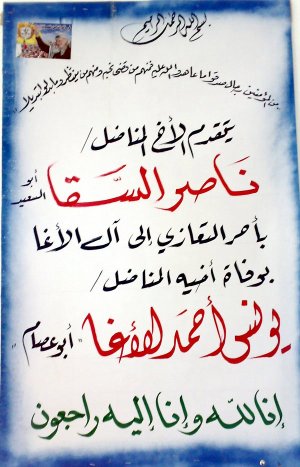 بسم الله الرحمن الرحيم
من المؤمنين رجال صدقوا ما عاهدوا الله عليه فمنهم من قضى نحبه ومنهم من ينتظر وما بدلوا تبديلا
يتقدم الأخ المناضل /
ناصر السقا أبو السعيد
بأحر التعازي إلى آل الأغا
بوفاة أخيه المناضل /
يونس أحمد الأغا "أبو عصام"
إنا لله وإنا إليه راجعون